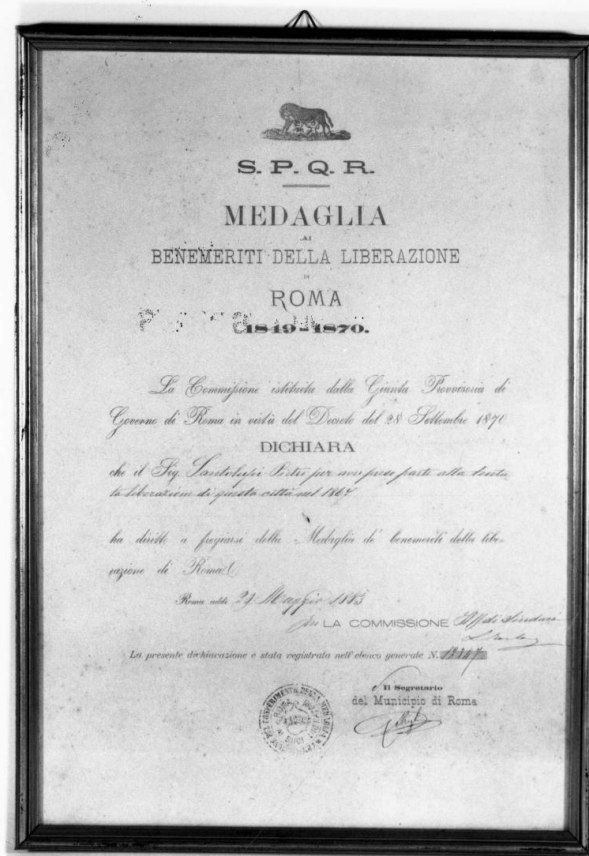 S. P. Q. R.
MEDAGLIA
AI
BENEMERITI DELLA LIBERAZIONE
DI
ROMA
1849-1870.
La Commissione istituita dalla Giunta Provvisoria di
Governo di Roma in virtù del Decreto del 28 Settembre 1870
DICHIARA
che il Sig. per aver preso parte alla tentata
liberazione di questa città nel 1867
ha diritto a fregiarsi della Medaglia de' benemeriti della libe-
razione di Roma
Roma addì 29 Maggio
LA COMMISSIONE
La presente dichiarazione è stata registrata nell'elenco generale N.
Il Segretario
del Municipio di Roma